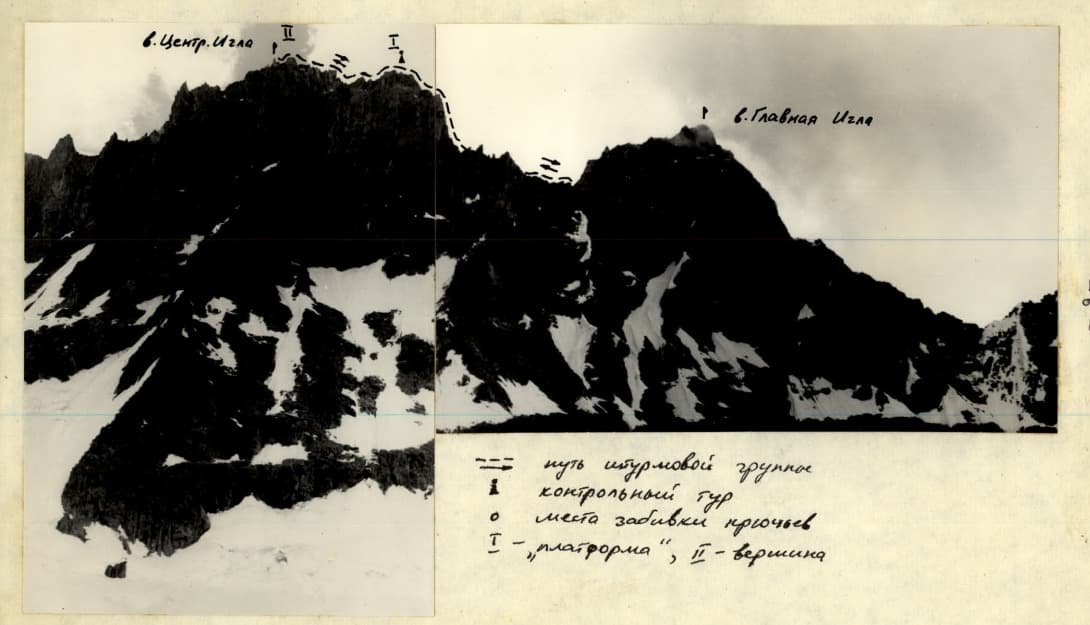 в. Центр. Игла
II
I
в. Главная Игла
путь штурмовой группы
контрольный тур
места забивки крючьев
I - „платформа“, II - вершина